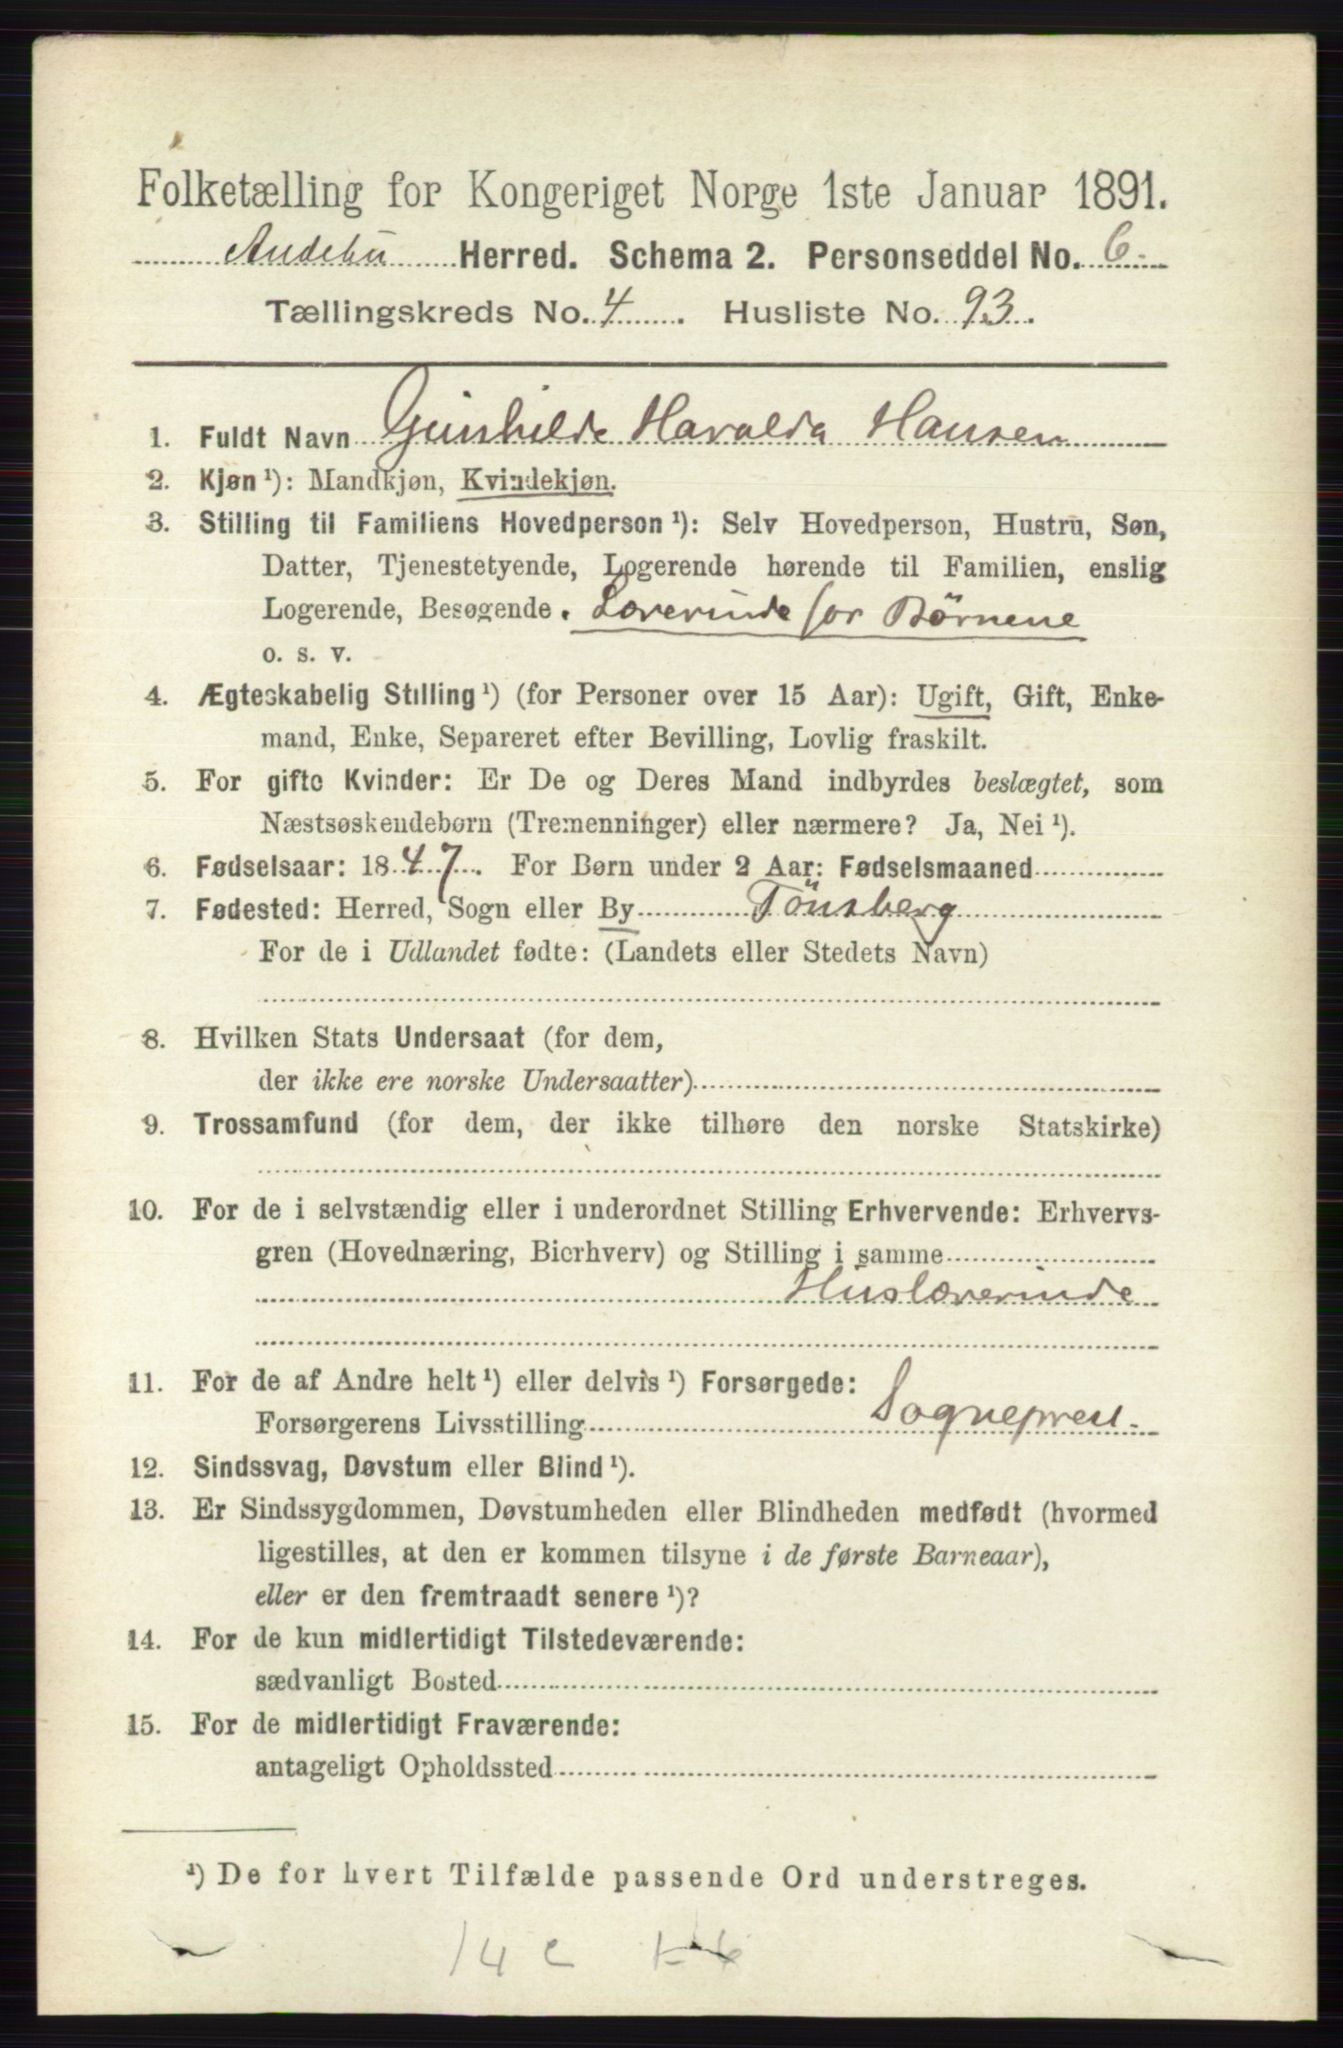 Folketælling for Kongeriget Norge 1ste Januar 1891.
Andebu Herred. Schema 2. Personseddel No. 6
Tællingskreds No. 4. Husliste No. 93.
1. Fuldt Navn Gunhilde Haralda Hansen
2. Kjøn ¹): Mandkjøn, Kvindekjøn.
3. Stilling til Familiens Hovedperson ¹): Selv Hovedperson, Hustru, Søn,
Datter, Tjenestetyende, Logerende hørende til Familien, enslig
Logerende, Besøgende. Lærerinde for Børnene
o. s. v.
4. Ægteskabelig Stilling ¹) (for Personer over 15 Aar): Ugift, Gift, Enke-
mand, Enke, Separeret efter Bevilling, Lovlig fraskilt.
5. For gifte Kvinder: Er De og Deres Mand indbyrdes beslægtet, som
Næstsøskendebørn (Tremenninger) eller nærmere? Ja, Nei ¹).
6. Fødselsaar: 1847. For Børn under 2 Aar: Fødselsmaaned
7. Fødested: Herred, Sogn eller By Tönsberg
For de i Udlandet fødte: (Landets eller Stedets Navn)
8. Hvilken Stats Undersaat (for dem,
der ikke ere norske Undersaatter)
9. Trossamfund (for dem, der ikke tilhøre den norske Statskirke)
10. For de i selvstændig eller i underordnet Stilling Erhvervende: Erhvervs-
gren (Hovednæring, Bierhverv) og Stilling i samme
Huslærerinde
11. For de af Andre helt ¹) eller delvis ¹) Forsørgede:
Forsørgerens Livsstilling Sogneprest.
12. Sindssvag, Døvstum eller Blind ¹).
13. Er Sindssygdommen, Døvstumheden eller Blindheden medfødt (hvormed
ligestilles, at den er kommen tilsyne i de første Barneaar),
eller er den fremtraadt senere ¹)?
14. For de kun midlertidigt Tilstedeværende:
sædvanligt Bosted
15. For de midlertidigt Fraværende:
antageligt Opholdssted
¹) De for hvert Tilfælde passende Ord understreges.
14 c